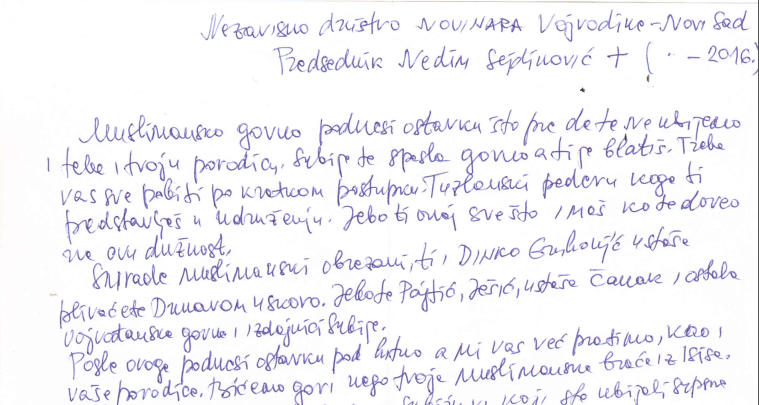 Nezavisno društvo NOVINARA Vojvodine - Novi Sad
Predsednik Nedim Sejdinović + ( . . – 2016.)
Muslimansko govno podnesi ostavku što pre da te ne ubijemo
i tebe i tvoju porodicu. Srbija te spasla govno a ti je blatiš. Treba
vas sve pobiti po kratkom postupku. Tuzlanski pederu koga ti
predstavljaš u udruženju. Jebo ti onaj sve što imaš ko te doveo
na ovu dužnost.
Smrade muslimanski obrezani, ti, DINKO Gruhonjić ustaša
plivaćete Dunavom uskoro. Jebo te Pajtić, Ješić, ustaša Čanak i ostala
vojvođanska govna i izdajnici Srbije.
Posle ovoga podnesi ostavku pod hitno a mi vas već pratimo, kao i
vaše porodice. Bićemo gori nego tvoja muslimanska braća iz Isisa.
koji ste ubijali srpsne